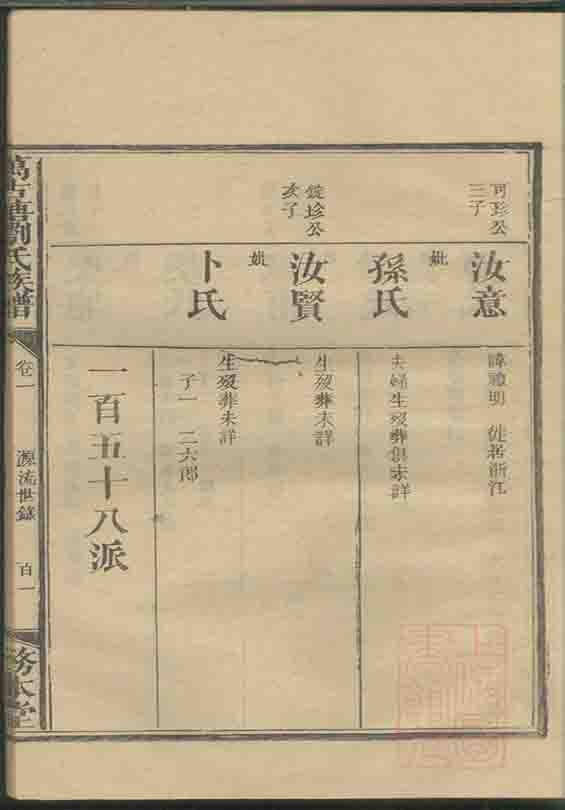 可珍公
三子
汝意
諱禮明 徙居浙江
妣
孫氏
夫婦生殁葬俱未詳
鋌珍公
亥子
汝賢
生殁葬未詳
妣
卜氏
生殁葬未詳
子一 二六郎
一百五十八派
萬古塘劉氏族譜
卷一
源流世錄
百一
務本堂